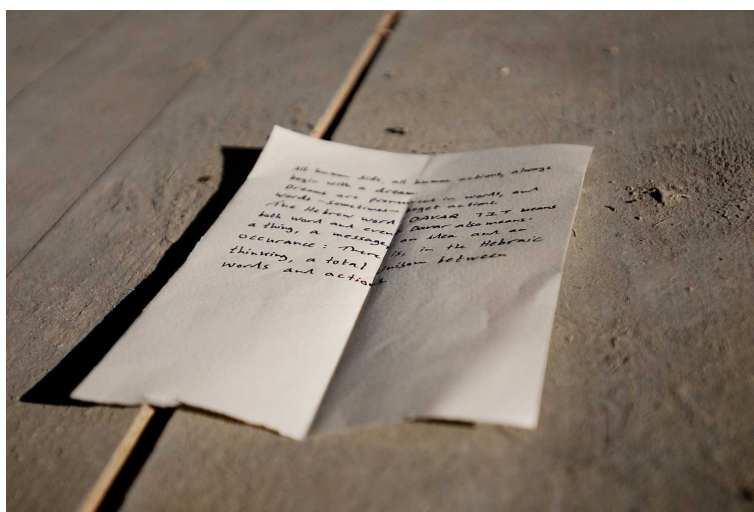 All human bids, all human actions, always
begin with a dream.
Dreams are pronounced in words, and
words - sometimes - beget actions.
The Hebrew word DAVAR means
both word and event. Davar also means:
a thing, a message, an idea and an
occurance: There is, in the Hebraic
thinking, a total unison between
words and actions